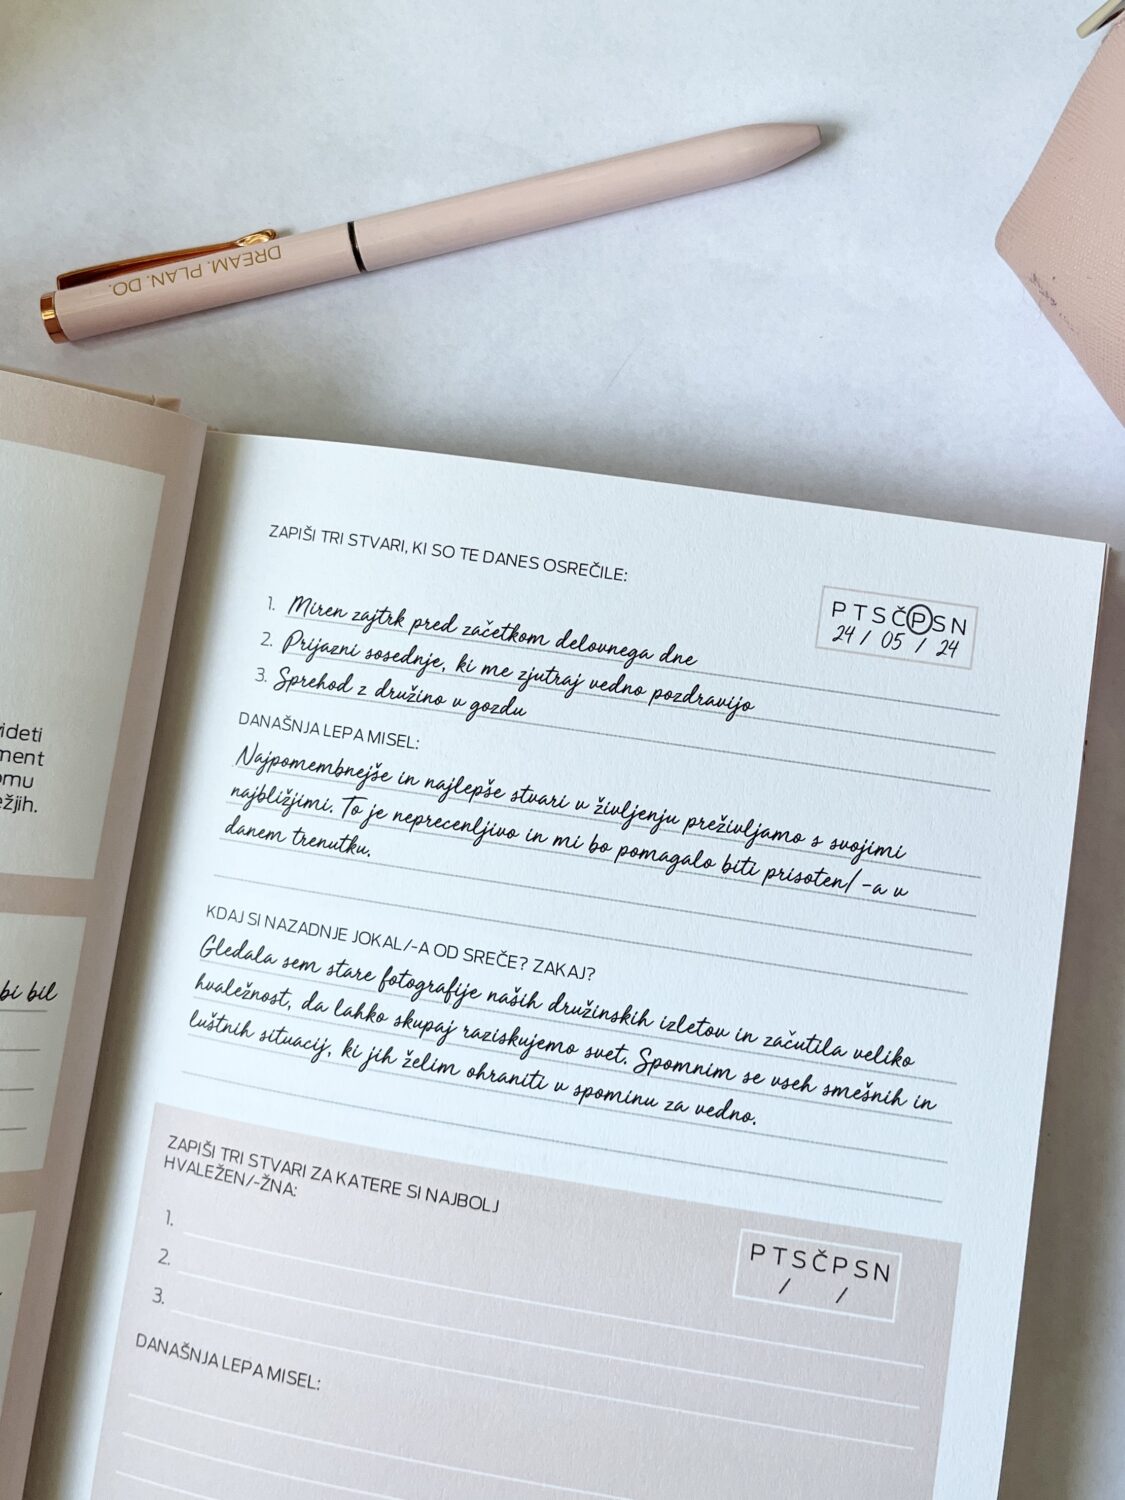 DREAM. PLAN. DO.
ZAPIŠI TRI STVARI, KI SO TE DANES OSREČILE:
P T S Č P S N
24 / 05 / 24
1. Miren zajtrk pred začetkom delovnega dne
2. Prijazni sosednje, ki me zjutraj vedno pozdravijo
3. Sprehod z družino v gozdu
DANAŠNJA LEPA MISEL:
Najpomembnejše in najlepše stvari v življenju preživljamo s svojimi
najbližjimi. To je neprecenljivo in mi bo pomagalo biti prisoten/ -a v
danem trenutku.
KDAJ SI NAZADNJE JOKAL/-A OD SREČE? ZAKAJ?
Gledala sem stare fotografije naših družinskih izletov in začutila veliko
hvaležnost, da lahko skupaj raziskujemo svet. Spomnim se vseh smešnih in
luštnih situacij, ki jih želim ohraniti v spominu za vedno.
ZAPIŠI TRI STVARI ZA KATERE SI NAJBOLJ
HVALEŽEN/-ŽNA:
P T S Č P S N
/ /
1.
2.
3.
DANAŠNJA LEPA MISEL:
bi bil